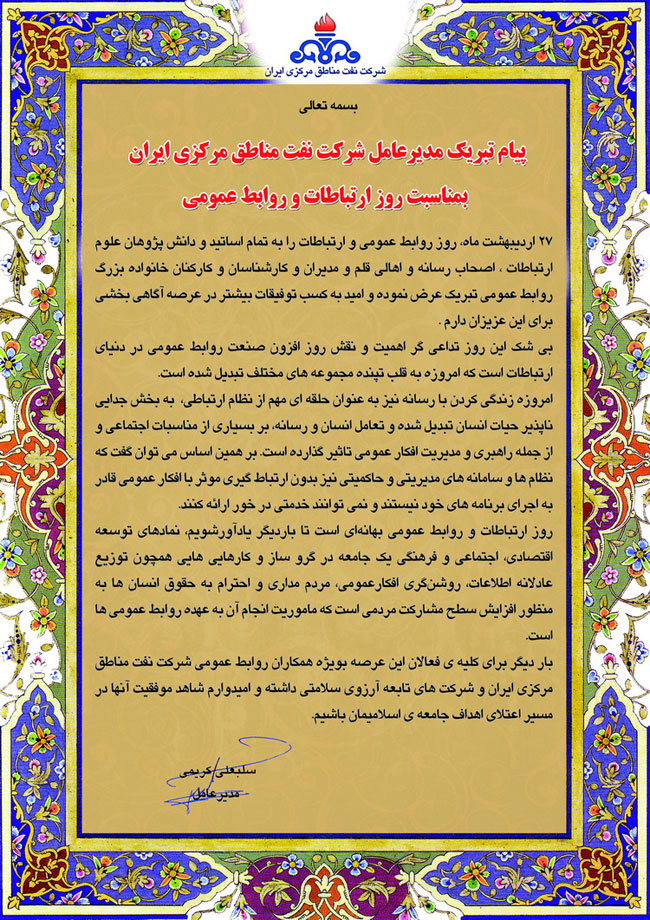 شرکت نفت مناطق مرکزی ایران
بسمه تعالی
پیام تبریک مدیرعامل شرکت نفت مناطق مرکزی ایران
بمناسبت روز ارتباطات و روابط عمومی
۲۷ اردیبهشت ماه، روز روابط عمومی و ارتباطات را به تمام اساتید و دانش پژوهان علوم
ارتباطات ، اصحاب رسانه و اهالی قلم و مدیران و کارشناسان و کارکنان خانواده بزرگ
روابط عمومی تبریک عرض نموده و امید به کسب توفیقات بیشتر در عرصه آگاهی بخشی
برای این عزیزان دارم .
بی شک این روز تداعی گر اهمیت و نقش روز افزون صنعت روابط عمومی در دنیای
ارتباطات است که امروزه به قلب تپنده مجموعه های مختلف تبدیل شده است.
امروزه زندگی کردن با رسانه نیز به عنوان حلقه ای مهم از نظام ارتباطی، به بخش جدایی
ناپذیر حیات انسان تبدیل شده و تعامل انسان و رسانه، بر بسیاری از مناسبات اجتماعی و
از جمله راهبری و مدیریت افکار عمومی تاثیر گذارده است. بر همین اساس می توان گفت که
نظام ها و سامانه های مدیریتی و حاکمیتی نیز بدون ارتباط گیری موثر با افکار عمومی قادر
به اجرای برنامه های خود نیستند و نمی توانند خدمتی در خور ارائه کنند.
روز ارتباطات و روابط عمومی بهانه‌ای است تا باردیگر یادآورشویم، نمادهای توسعه
اقتصادی، اجتماعی و فرهنگی یک جامعه در گرو ساز و کارهایی هایی همچون توزیع
عادلانه اطلاعات، روشن‌گری افکارعمومی، مردم مداری و احترام به حقوق انسان ها به
منظور افزایش سطح مشارکت مردمی است که ماموریت انجام آن به عهده روابط عمومی ها
است.
بار دیگر برای کلیه ی فعالان این عرصه بویژه همکاران روابط عمومی شرکت نفت مناطق
مرکزی ایران و شرکت های تابعه آرزوی سلامتی داشته و امیدوارم شاهد موفقیت آنها در
مسیر اعتلای اهداف جامعه ی اسلامیمان باشیم.
سلبعلی کریمی
مدیرعامل